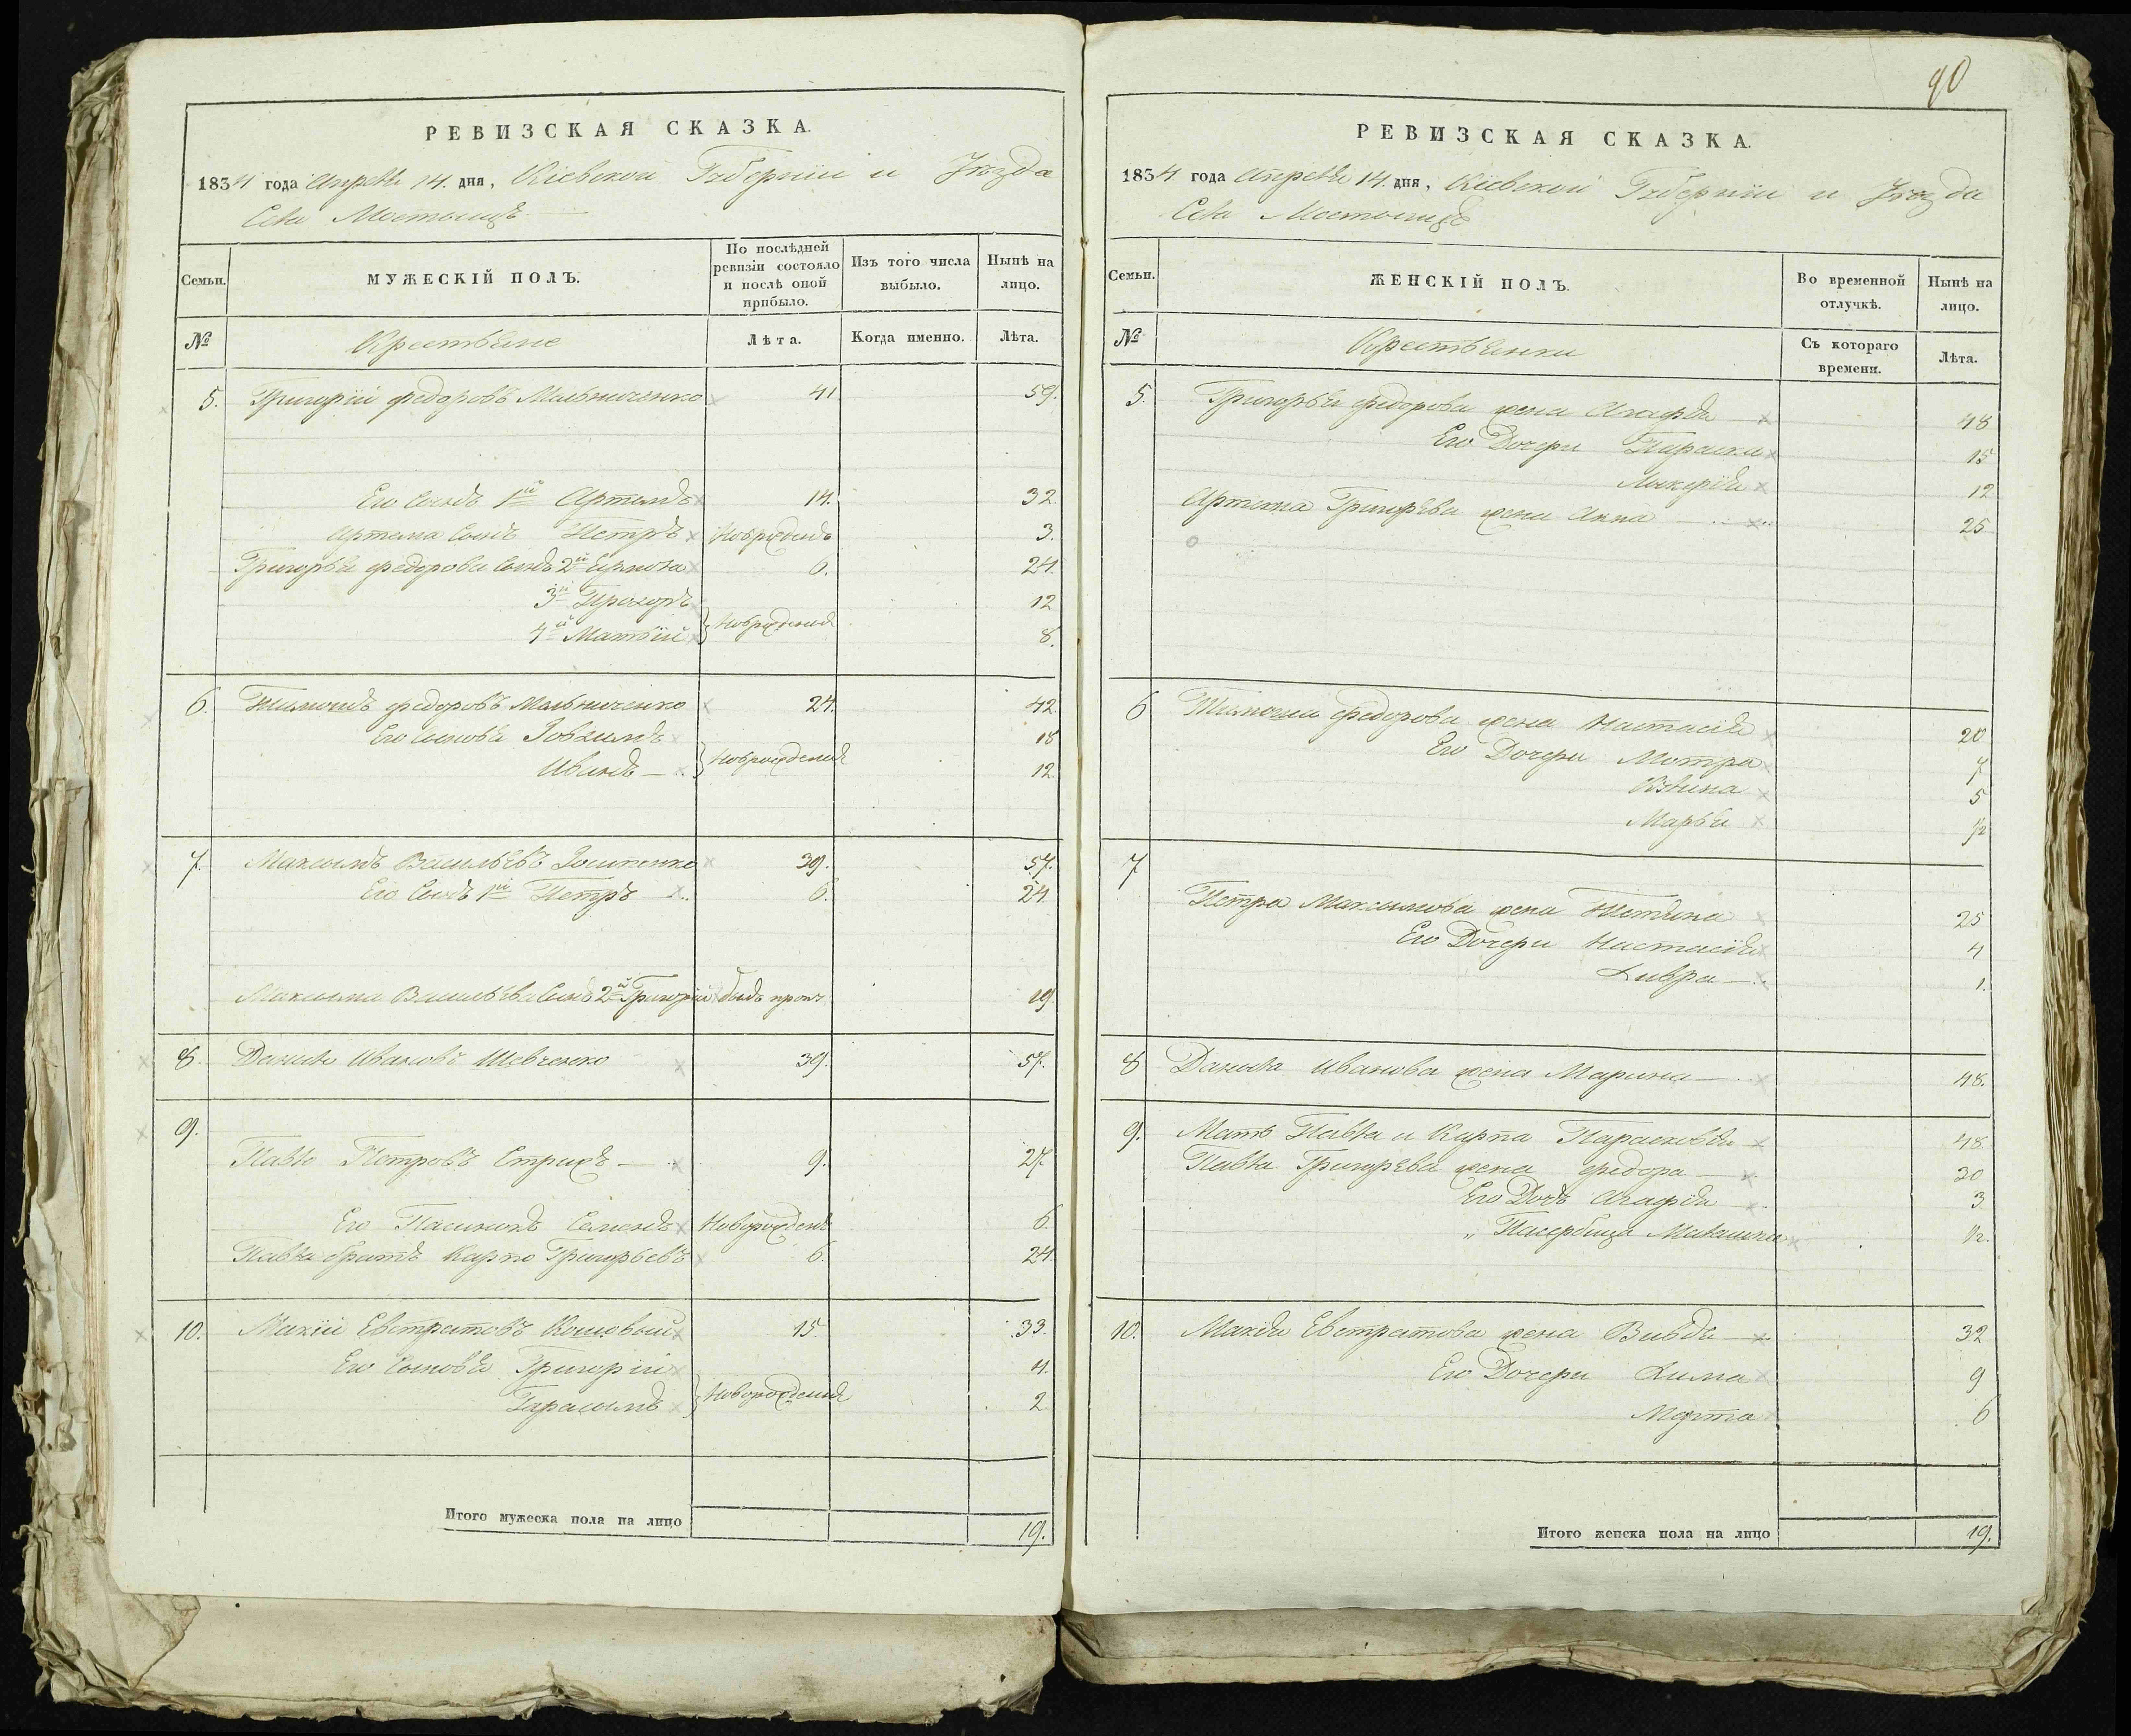 РЕВИЗСКАЯ СКАЗКА.
1834 года Апреля 14. дня, Кіевской Губерніи и Уѣзда
Села Мостыщъ
Семьи.
МУЖЕСКІЙ ПОЛЪ.
По послѣдней ревизіи состояло и послѣ оной прибыло.
Изъ того числа выбыло.
Нынѣ на лицо.
№
Крестьяне
Лѣта.
Когда именно.
Лѣта.
5. Григорій Федоровъ Мельниченко 41 59.
Его Сынъ 1й Артемъ 14. 32.
Артема Сынъ Петръ Новрожденъ 3.
Григорья Федорова Сынъ 2й Ермола 6. 24.
3й Прохоръ 12
4й Матвій Новрожденыя 8.
6. Тимошъ Федоровъ Мельниченко 24. 42.
Его Сыновья 18
Иванъ Новрожденыя 12.
7. Максымъ Васильевъ 39. 57.
Его Сынъ 1й Петръ 6. 24.
Максыма Васильева Сынъ 2й Григорій былъ проп: 19
8. Данило Ивановъ Шевченко 39. 57.
9.
Павло Петровъ Стрихъ 9. 27.
Его Пасинокъ Семенъ Новорожденъ 6.
Павла братъ Карпо Григорьевъ 6. 24.
10. Макій Евстратовъ Кошовый 15 33.
Его Сыновья Григорій 4.
Гарасымъ Новорожденыя 2
Итого мужеска пола на лицо 19.
90
РЕВИЗСКАЯ СКАЗКА.
1834. года Апреля 14. дня, Кіевской Губерніи и Уѣзда
Села Мостыщъ
Семьи.
ЖЕНСКІЙ ПОЛЪ.
Во временной отлучкѣ.
Нынѣ на лицо.
№
Крестьянки
Съ котораго времени.
Лѣта.
5. Григорья Федорова жена Агафья 48
Его Дочери Параска 15
Лукерія 12
Артема Григорьева жена Анна 25
6 Тимоша Федорова жена Настасія 20
Его Дочери Мотря 7
Улита 5
Марья 1/2
7
Петра Максымова жена Тетяна 25
Его Дочери Настасія 4
Хивря 1.
8 Данила Иванова жена Марина 48.
9. Мать Павла и Карпа Парасковья 48
Павла Григорьева жена Федора 30
Его Дочь Агафья 3
" Пасербица 1/2.
10. Макія Евстратова жена Вивдя 32
Его Дочери Хима 9
Марта 6
Итого женска пола на лицо 19.